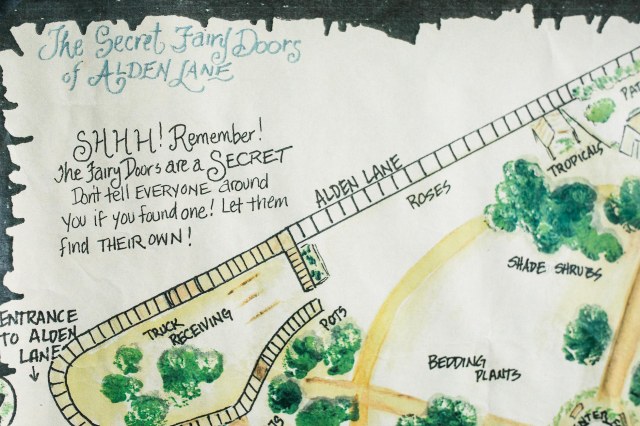 The Secret Fairy Doors
of ALDEN LANE
SHHH! Remember!
The Fairy Doors are a SECRET
Don't tell EVERYONE around
you if you found one! Let them
find THEIR OWN!
ALDEN LANE
ROSES
TROPICALS
SHADE SHRUBS
ENTRANCE
TO ALDEN
LANE
TRUCK
RECEIVING
POTS
BEDDING
PLANTS